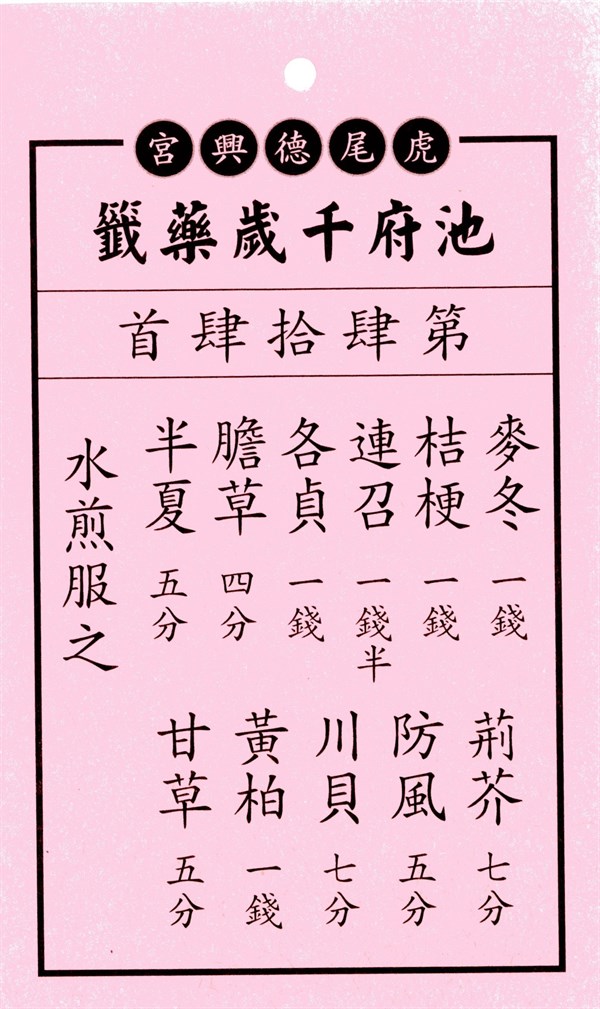 虎尾德興宮
池府千歲藥籤
第肆拾肆首
麥冬 一錢
桔梗 一錢
連召 一錢半
各貞 一錢
膽草 四分
半夏 五分
荊芥 七分
防風 五分
川貝 七分
黃柏 一錢
甘草 五分
水煎服之